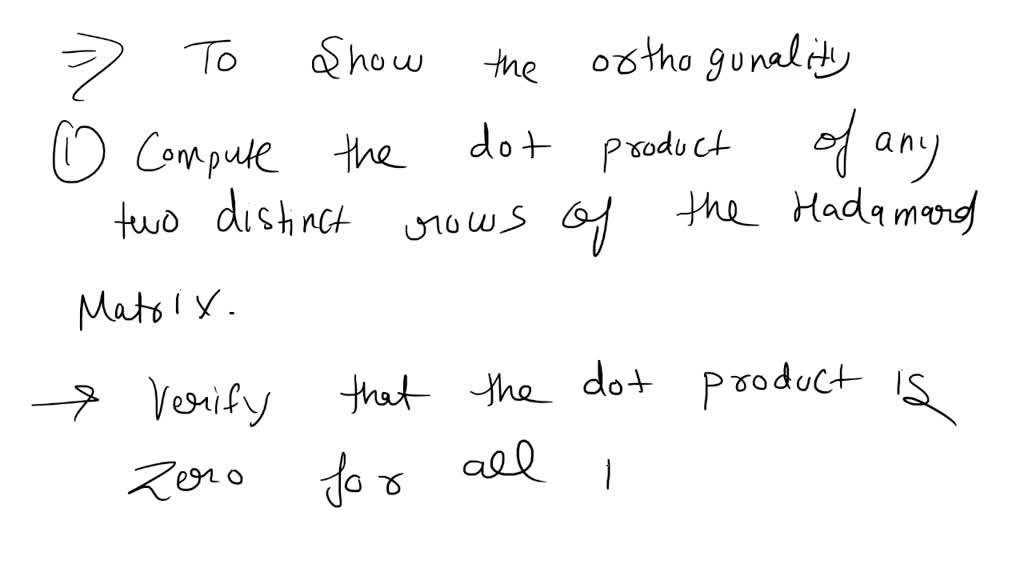 ⇒ To Show the orthogunality
① Compute the dot product of any
two distinct rows of the Hadamard
Matrix.
→ Verify that the dot product is
Zero for all